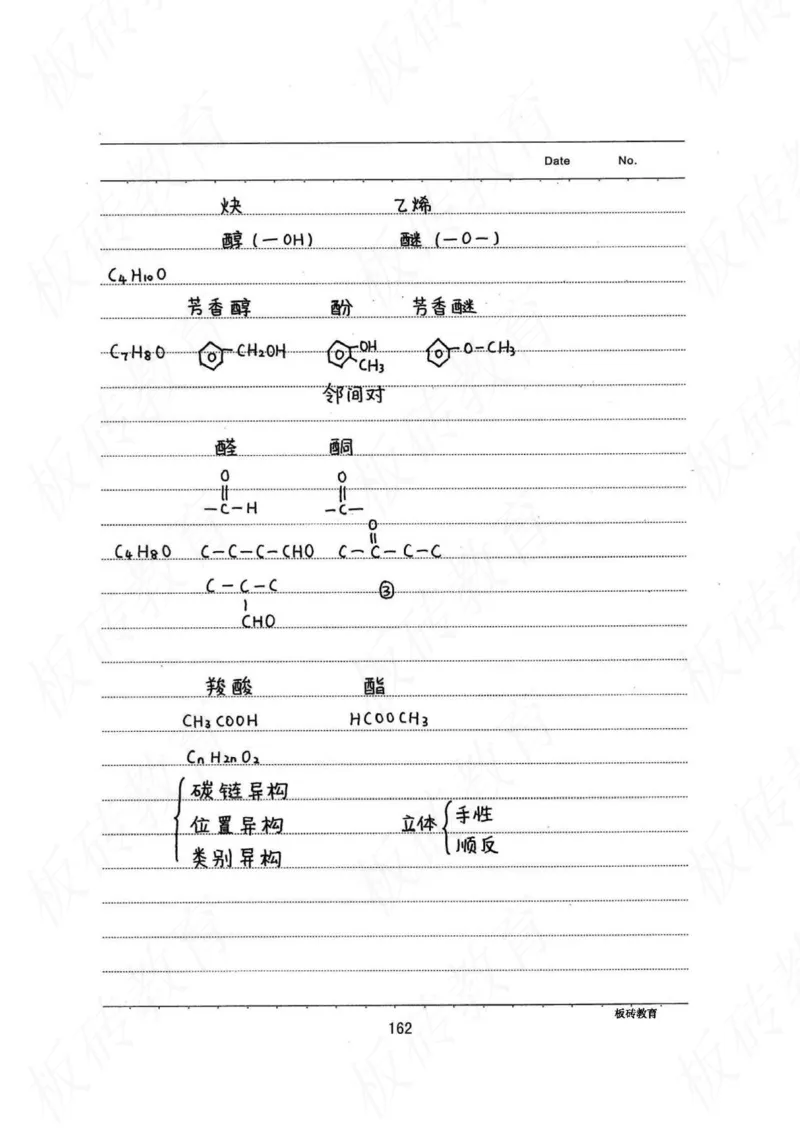 Date No.
炔 乙烯
醇(—OH) 醚(—O—)
C₄H₁₀O
芳香醇 酚 芳香醚
C₇H₈O CH₂OH OH O—CH₃
CH₃
邻间对
醛 酮
O O
‖ ‖
—C—H —C—
O
‖
C₄H₈O C—C—C—CHO C—C—C—C
C—C—C ③
|
CHO
羧酸 酯
CH₃COOH HCOOCH₃
CnH2nO₂
碳链异构
位置异构 立体 手性
类别异构 顺反
板砖教育
162